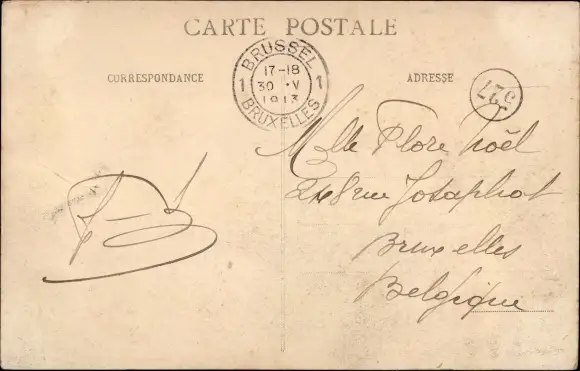 CARTE POSTALE
CORRESPONDANCE
ADRESSE
BRUSSEL
1 17-18 1
30 · V
1913
BRUXELLES
227
Mlle Flore Noël
248 rue Josaphat
Bruxelles
Belgique